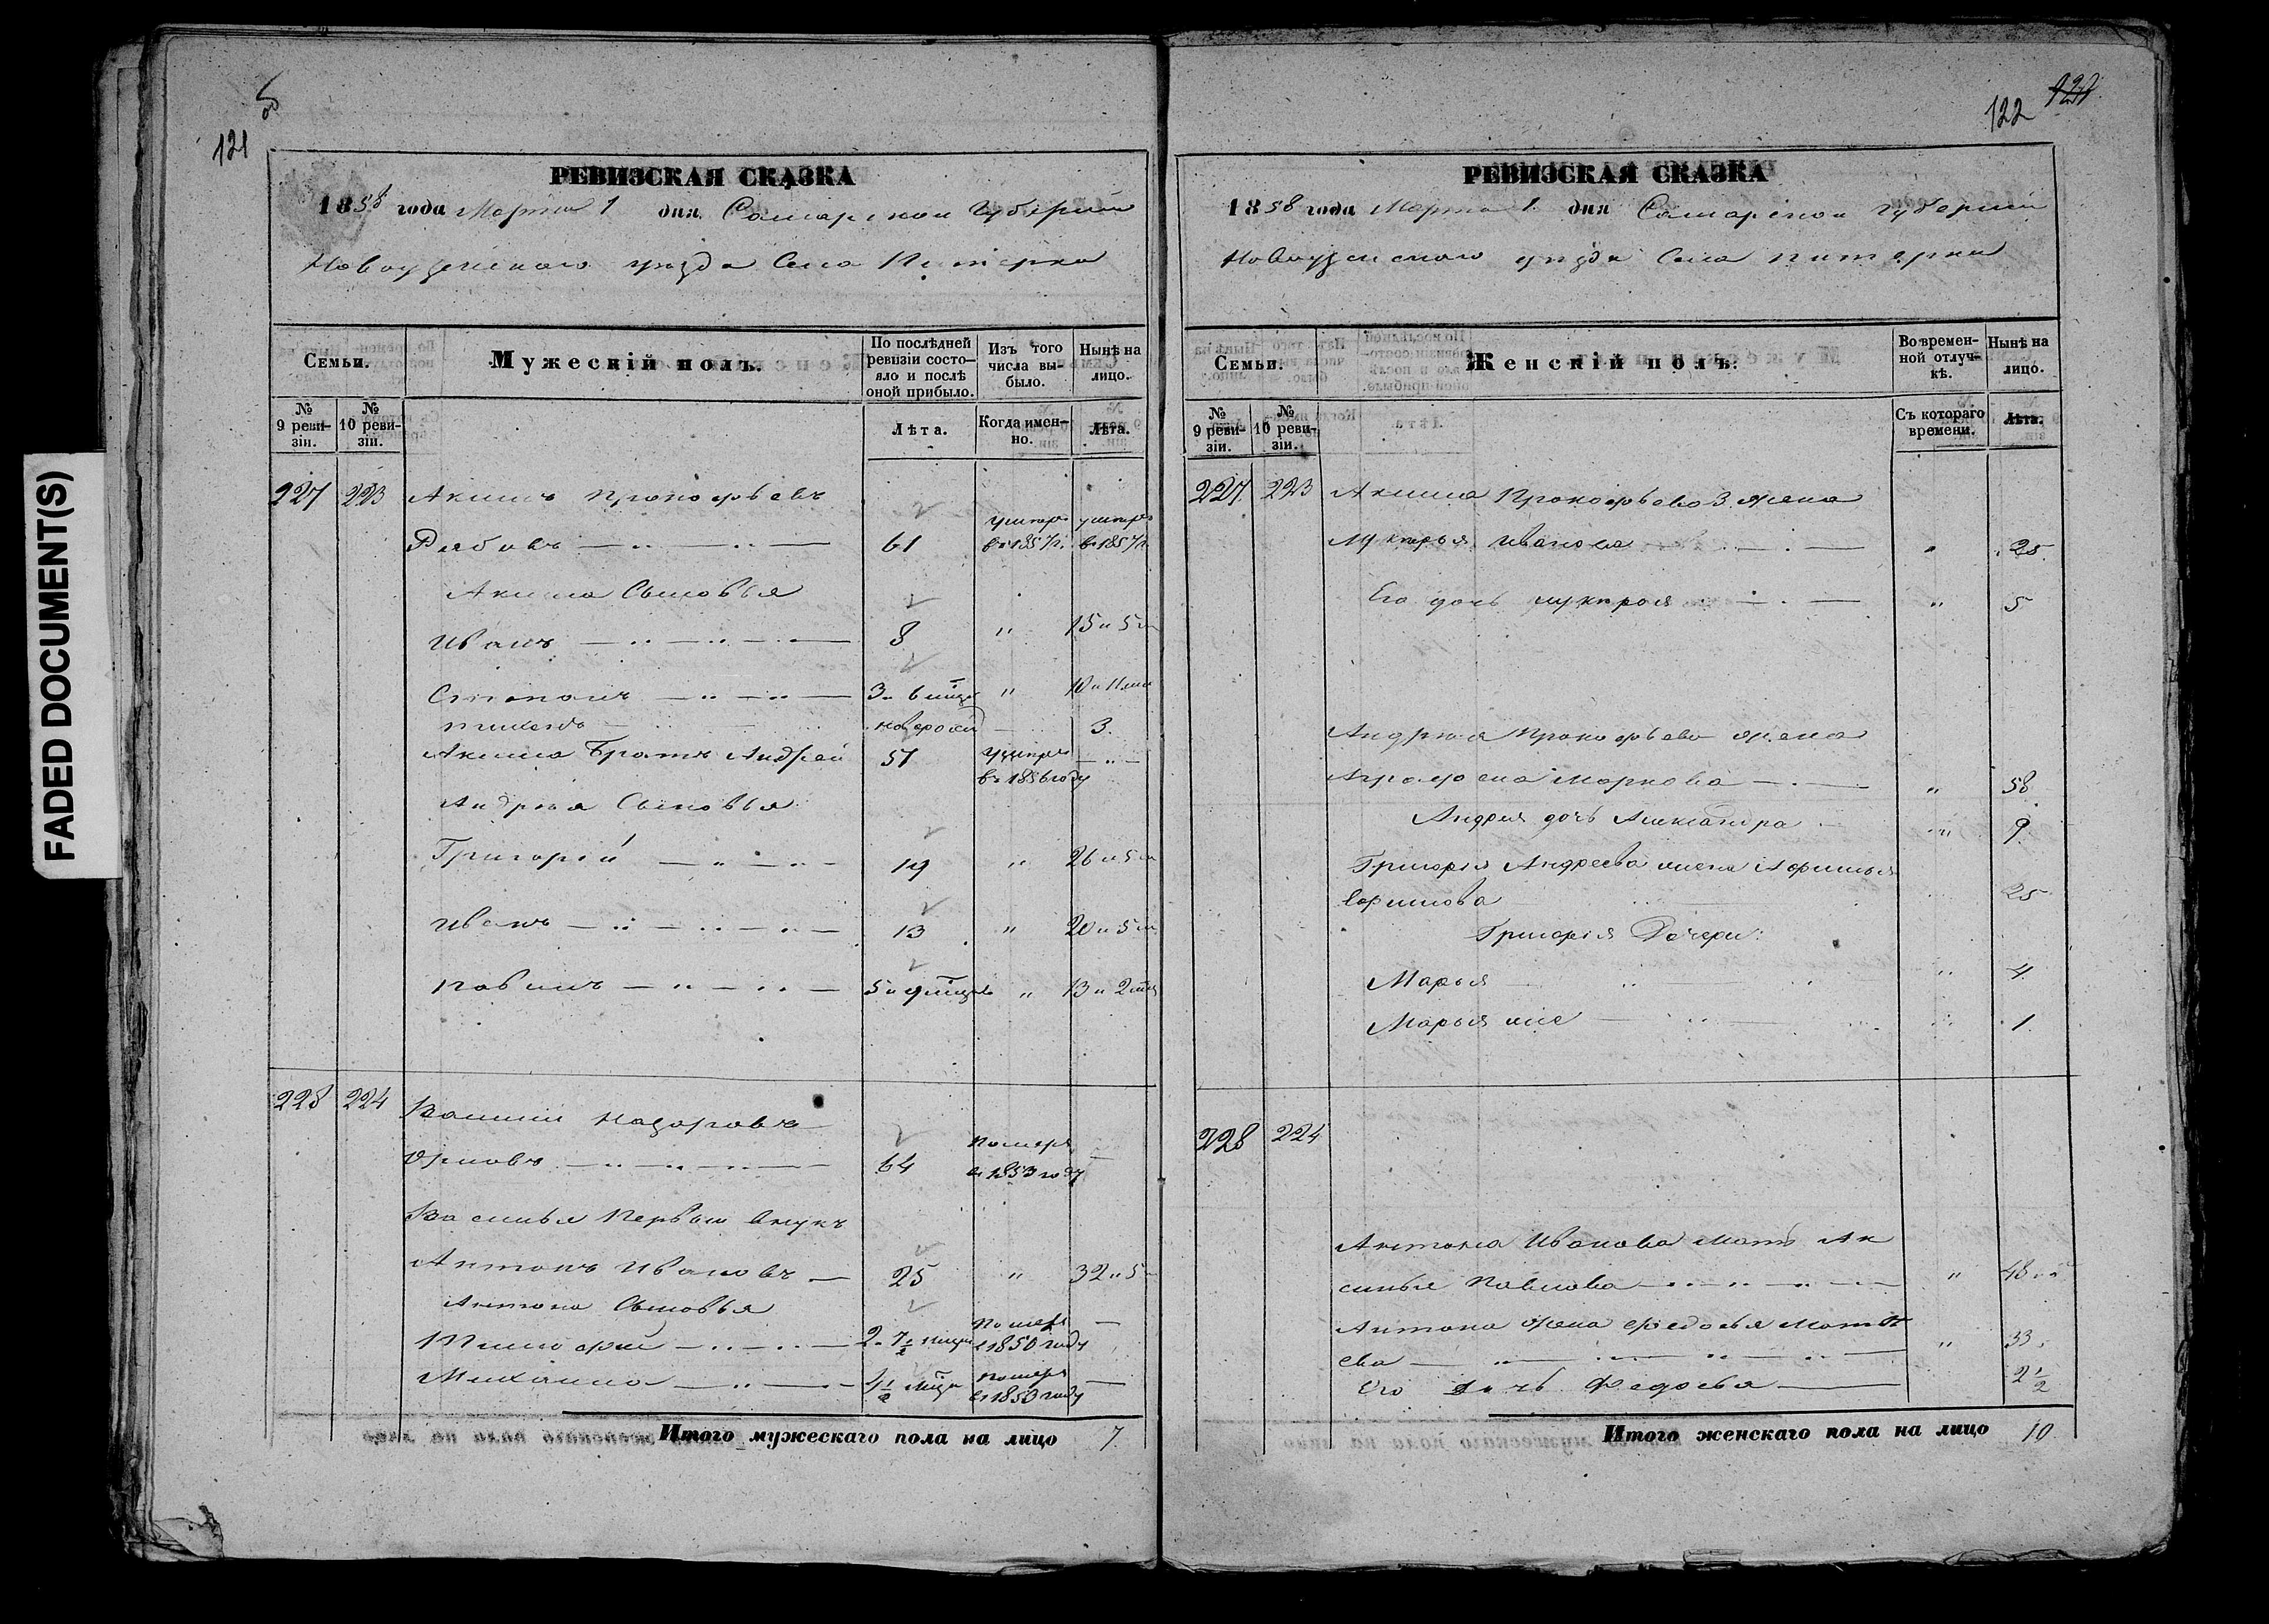 FADED DOCUMENT(S)
121
РЕВИЗСКАЯ СКАЗКА
1858 года Марта 1 дня Самарской Губернии
Новоузенскаго уезда Села Питерки
Семьи.
Мужескій полъ.
По послѣдней ревизіи состо-
яло и послѣ
оной прибыло.
Изъ того
числа вы-
было.
Нынѣ на
лицо.
№
9 реви-
зіи.
№
10 реви-
зіи.
Лѣта.
Когда имен-
но.
Лѣта.
227 223 Акимъ Прокофьевъ
Рябовъ 61 умеръ въ 1857 г. умеръ въ 1857 г.
Акима Сыновья
Иванъ 8 " 15 и 5 м
Степанъ 3 и 6 мцов " 10 и 11 мц
новорож 3.
Акима Братъ Андрей 51 умеръ въ 1856 году
Андрея Сыновья
Григорій 19 " 26 и 5 м
Иванъ 13 " 20 и 5 м
Павилъ 5 и 9 мцов " 13 и 2 мца
228 224 Василий Назаровъ
64 Померъ в 1853 году
Василья Первый внукъ
Антонъ Ивановъ 25 " 32 и 5
Антона Сыновья
Тимофей 2 7 1/2 мцов Померъ в 1850 году
Михаила 4 1/2 мцов померъ в 1850 году
Итого мужескаго пола на лицо 7.
122
РЕВИЗСКАЯ СКАЗКА
1858 года Марта 1. дня Самарской Губернии
Новоузенскаго уезда Села Питерки
Семьи.
Женскій полъ.
Во времен-
ной отлуч-
кѣ.
Нынѣ на
лицо.
№
9 реви-
зіи.
№
10 реви-
зіи.
Съ котораго
времени.
Лѣта.
227 223 Акима Прокофьева 3. жена
Лукерья Иванова " 25.
Его дочь Лукерья " 5
Андрея Прокофьева жена
Аграфена Маркова " 58
Андрея дочь Александра " 9.
Григорья Андреева жена
Ефимова 25
Григорья Дочери:
Марья " 4
Марья 1.
228 224
Антона Иванова мать Ак
синья Павлова " 48
Антона жена Федосья Матве
ева " 33
Его Дочь Федосья 2 1/2
Итого женскаго пола на лицо 10